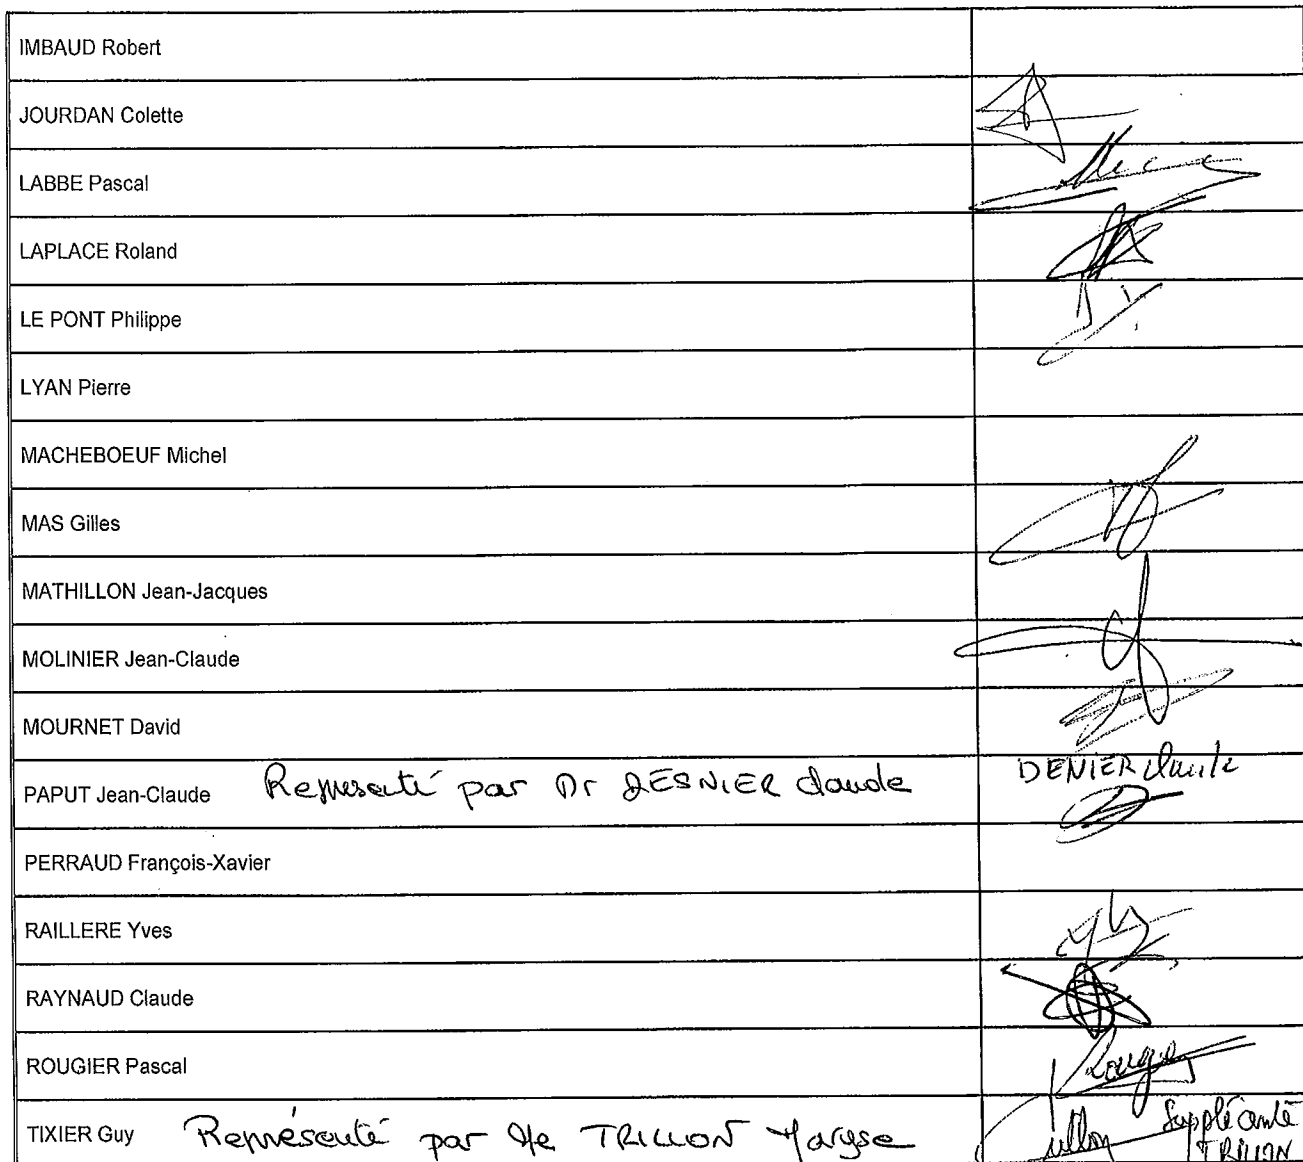 IMBAUD Robert
JOURDAN Colette
LABBE Pascal
LAPLACE Roland
LE PONT Philippe
LYAN Pierre
MACHEBOEUF Michel
MAS Gilles
MATHILLON Jean-Jacques
MOLINIER Jean-Claude
MOURNET David
PAPUT Jean-Claude Représenté par Mr DESNIER Claude DENIER Claude
PERRAUD François-Xavier
RAILLERE Yves
RAYNAUD Claude
ROUGIER Pascal Rougier
TIXIER Guy Représenté par Me TRILLON Maryse Trillon Suppléante
TRILLON